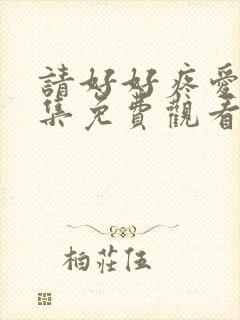 請好好疼愛
集免費觀看
柏莊伍